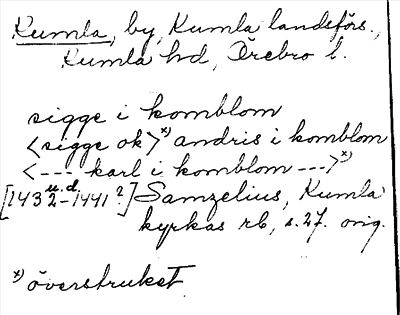 Kumla, by, Kumla landsförs.,
Kumla hd, Örebro l.
sigge i komblom
<sigge ok>x) andris i komblom
<--- karl i komblom --->x)
[1432 u.d.-1441?] Samzelius, Kumla
kyrkas rb, s. 27. orig.
x) överstruket